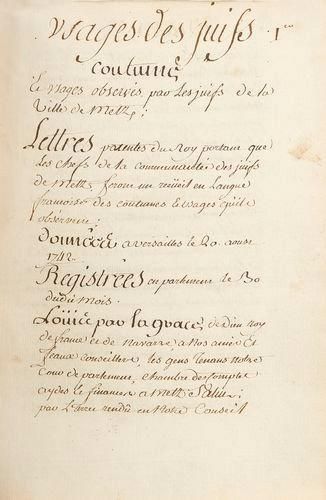 usages des juifs 1.er
coutumes
Et usages observés par les juifs de la
Ville de Metz,;
Lettres patentes du Roy portant que
Les chefs de la communauté des juifs
de Metz, feront un recüeil en Langue
françoise des coutumes & usages qu'ils
observent;
données a versailles le 20. aoust
1742.
Registrées en parlement le 30
dudit mois.
Loüis par la grace, de dieu Roy
de france et de navarre a Nos amés Et
feaux conseillers, les gens tenans Notre
Cour de parlement, chambre des comptes
aydes & finances a Metz Salut;
par L'arrest rendu en Notre Conseil